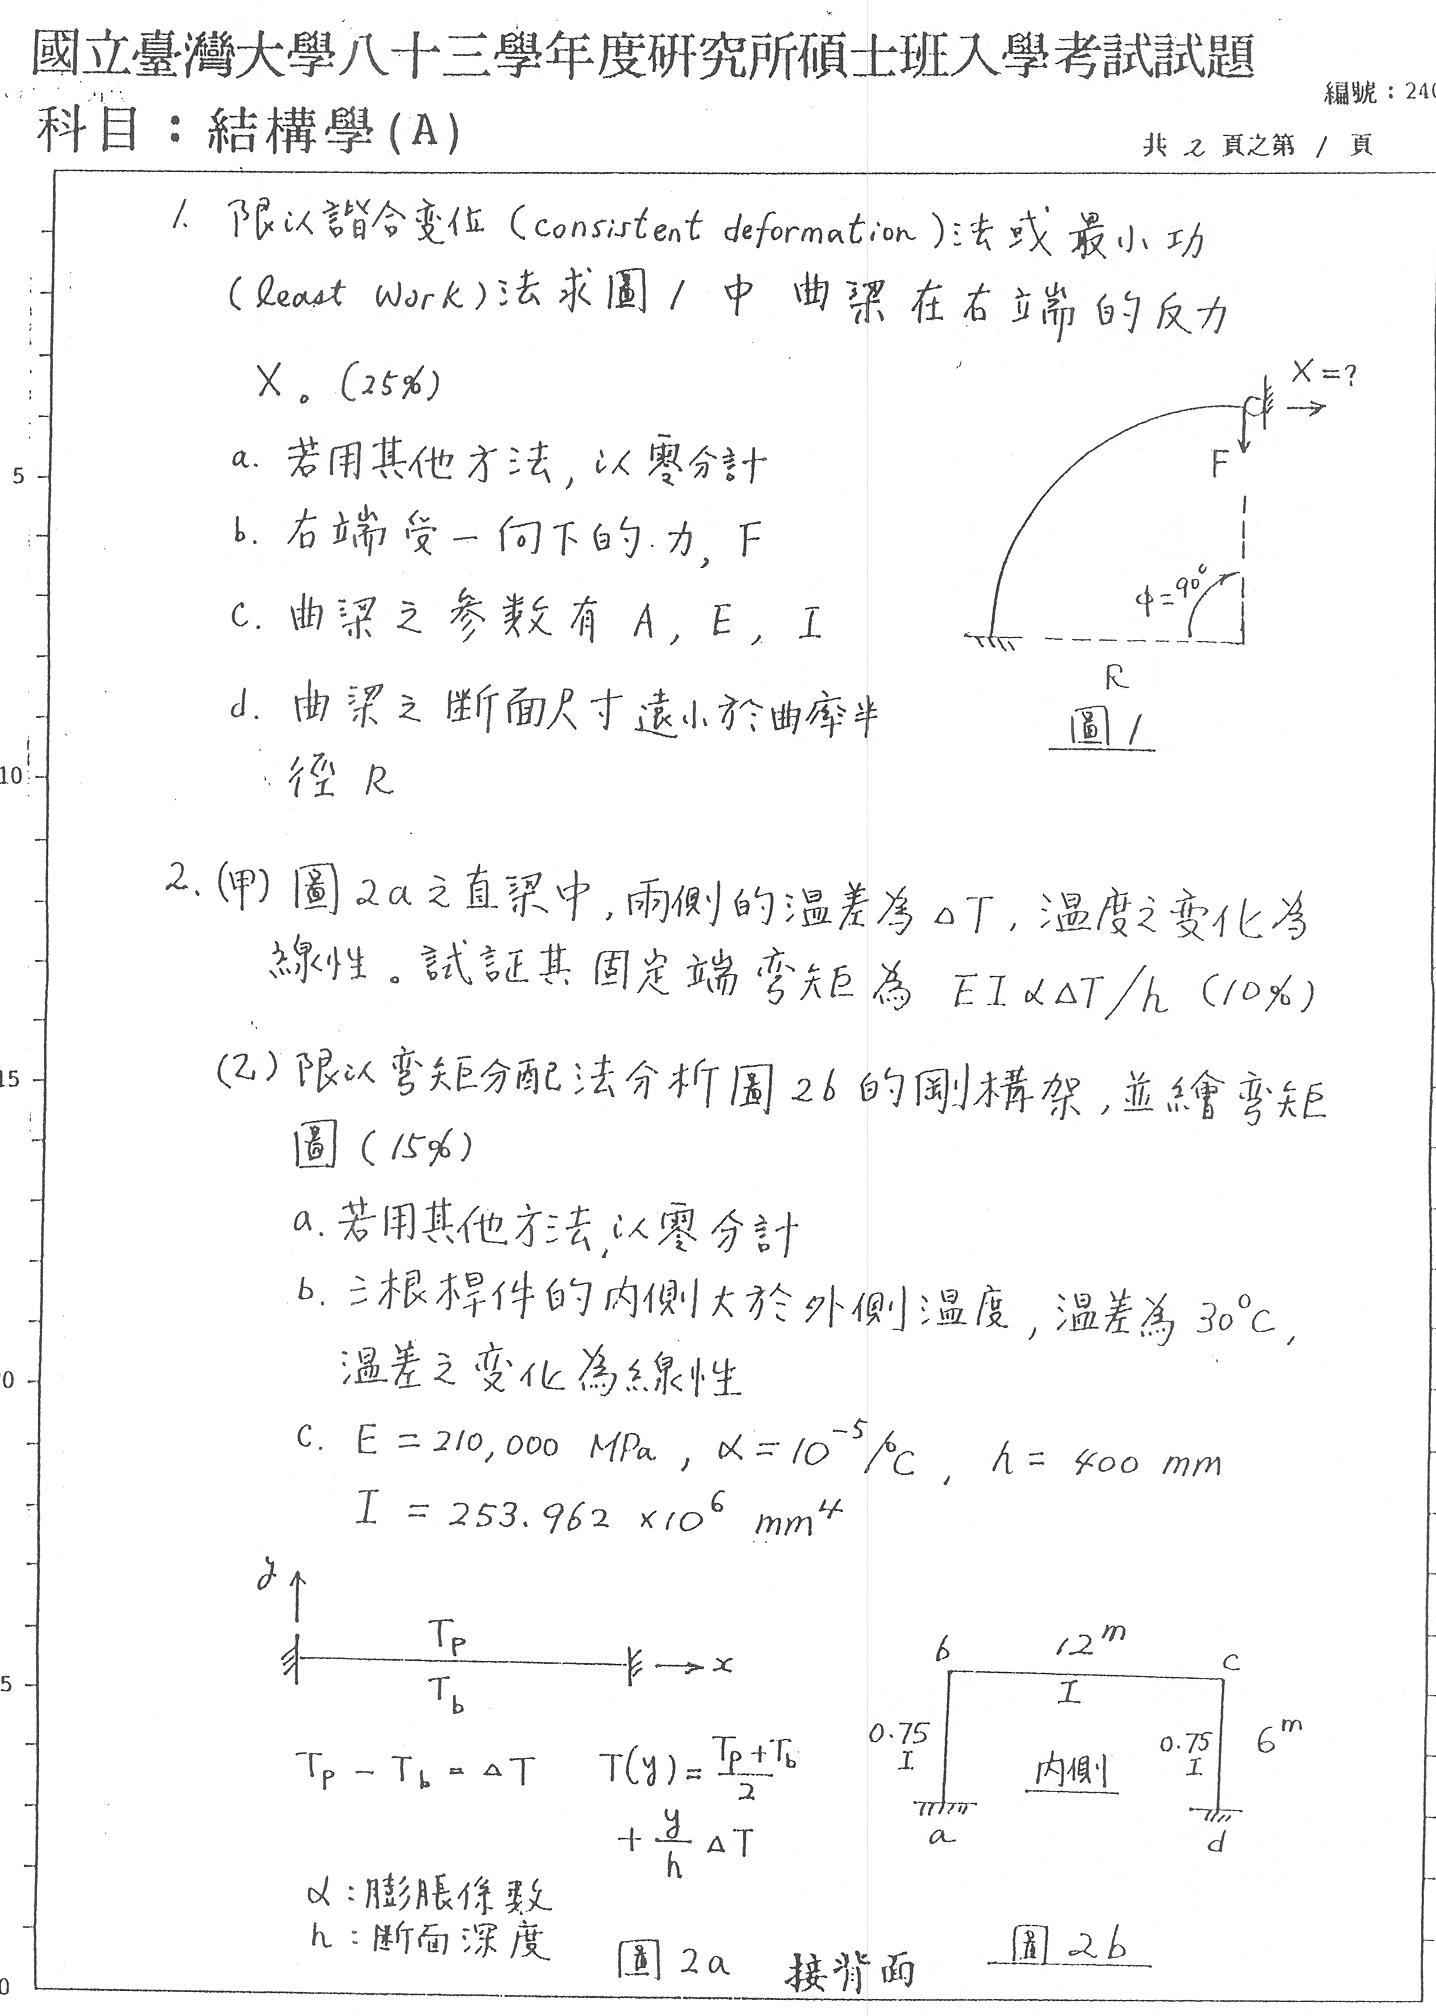 國立臺灣大學八十三學年度研究所碩士班入學考試試題
編號:240
科目:結構學(A)
共 2 頁之第 1 頁
1. 限以諧合变位 (consistent deformation) 法或最小功
(least work) 法求圖1中曲梁在右端的反力
X。(25%)
a. 若用其他方法, 以零分計
b. 右端受一向下的力, F
c. 曲梁之參數有 A, E, I
d. 曲梁之断面尺寸遠小於曲率半
徑 R
X=?
F
φ=90°
R
圖1
2. (甲) 圖2a之直梁中, 兩側的溫差為 ΔT, 溫度之变化為
線性。試証其固定端弯矩為 EIαΔT/h (10%)
(乙) 限以弯矩分配法分析圖2b的剛構架, 並繪弯矩
圖 (15%)
a. 若用其他方法, 以零分計
b. 三根桿件的內側大於外側溫度, 溫差為 30°C,
溫差之变化為線性
c. E = 210,000 MPa, α = 10⁻⁵/°C, h = 400 mm
I = 253.962 ×10⁶ mm⁴
y
Tp
Tb
x
Tp - Tb = ΔT
T(y) = (Tp+Tb)/2
+ y/h ΔT
α:膨脹係數
h:断面深度
圖2a
b
12m
c
I
0.75
I
內側
0.75
I
6m
a
d
圖2b
接背面
5
10
15
0
5
0